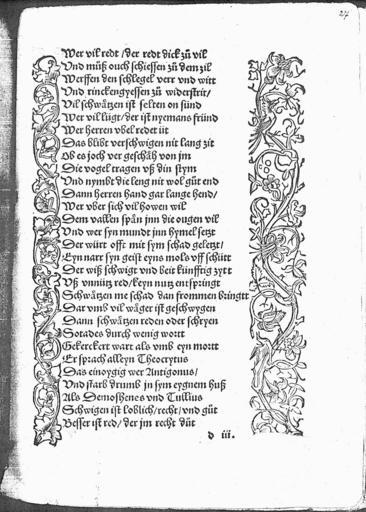 27
Wer vil redt / der redt dick zů vil
Vnd můß ouch schiessen zů dem zil
Werffen den schlegel verr vnd witt
Vnd rinckengyessen zů widerstrit /
Vil schwätzen ist selten on sünd
Wer vil lügt / der ist nyemans fründ
Wer herren vbel redet üt
Das blibt verschwigen nit lang zit
Ob es joch ver geschäh von jm
Die vogel tragen vß din stym
Vnd nymbt die leng nit wol gůt end
Dann herren hand gar lange hend /
Wer vber sich vil howen wil
Dem vallen spän jnn die ougen vil
Vnd wer syn mundt jnn hymel setzt
Der würt offt mit sym schad geletzt /
Eyn narr syn geist eyns mols vff schütt
Der wiß schwigt vnd beit künfftig zytt
Vß vnnütz red / keyn nutz entspringt
Schwätzen me schad dan frommen bringtt
Dar vmb vil wäger ist geschwygen
Dann schwätzen reden oder schryen
Sotades durch wenig wortt
Gekerckert wart als vmb eyn mortt
Er sprach alleyn Theocrytus
Das einöygig wer Antigonus /
Vnd starb drumb jn sym eygnem huß
Als Demosthenes vnd Tullius
Schwigen ist loblich / recht / vnd gůt
Besser ist red / der jm recht důt
d iii.